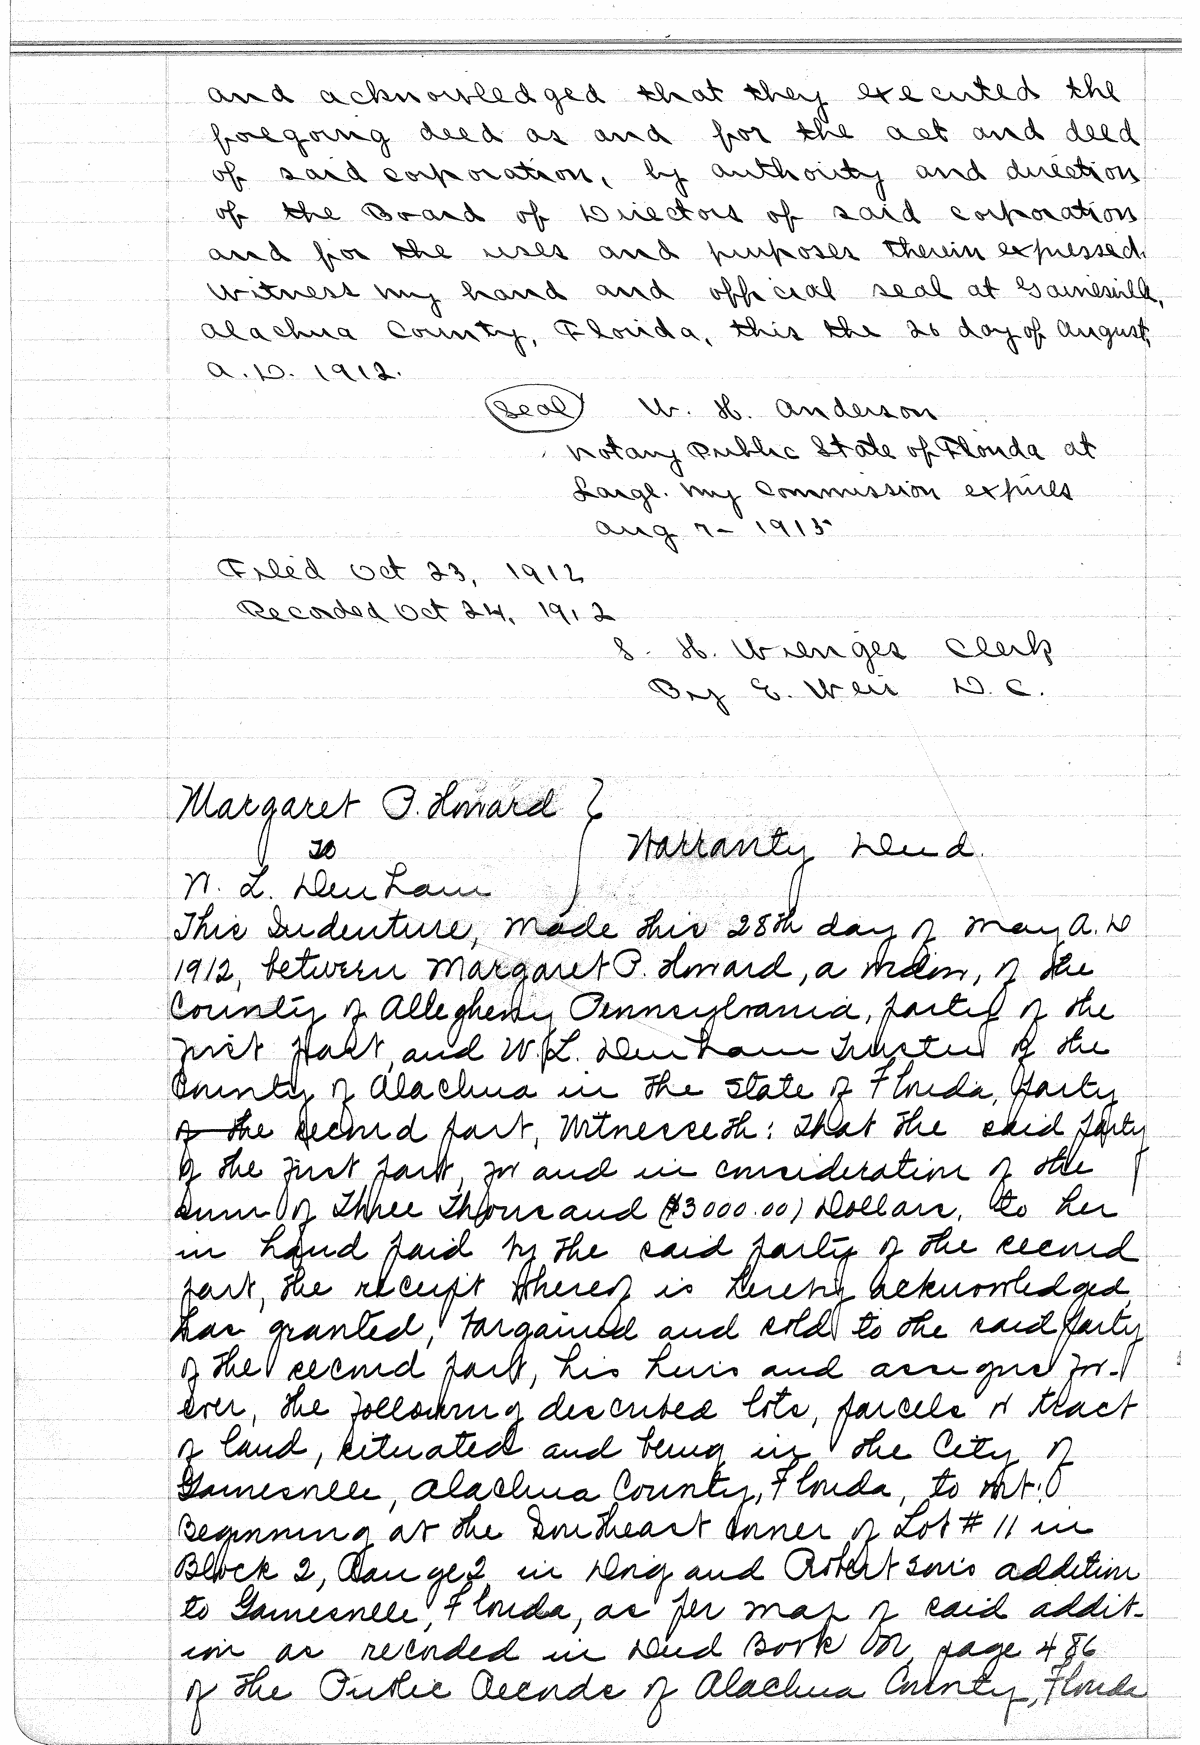 and acknowledged that they executed the
foregoing deed as and for the act and deed
of said corporation, by authority and direction
of the Board of Directors of said corporation
and for the uses and purposes therein expressed.
Witness my hand and official seal at Gainesville,
Alachua County, Florida, this the 26 day of August,
A.D. 1912.
Seal W. H. Anderson
Notary Public State of Florida at
Large. My Commission expires
Aug 7- 1915
Filed Oct 23, 1912
Recorded Oct 24, 1912
S. H. Wienges Clerk
By E. Weir D.C.
Margaret P. Howard
to
Warranty Deed.
W. L. Denham
This Indenture, Made this 28th day of May A.D
1912, between Margaret P. Howard, a widow, of the
County of Allegheny Pennsylvania, party of the
first part, and W. L. Denham Trustee of the
County of Alachua in the State of Florida, party
of the second part, Witnesseth: That the said party
of the first part, for and in consideration of the
sum of Three Thousand ($3000.00) Dollars, to her
in hand paid by the said party of the second
part, the receipt whereof is hereby acknowledged,
has granted, bargained and sold to the said party
of the second part, his heirs and assigns for-
ever, the following described lots, parcels or tract
of land, situated and being in the City of
Gainesville, Alachua County, Florida, to wit:
Beginning at the Southeast corner of Lot # 11 in
Block 2, Range 2 in Doig and Robertsons addition
to Gainesville, Florida, as per map of said addit-
ion as recorded in Deed Book page 486
of the Public Records of Alachua County, Florida